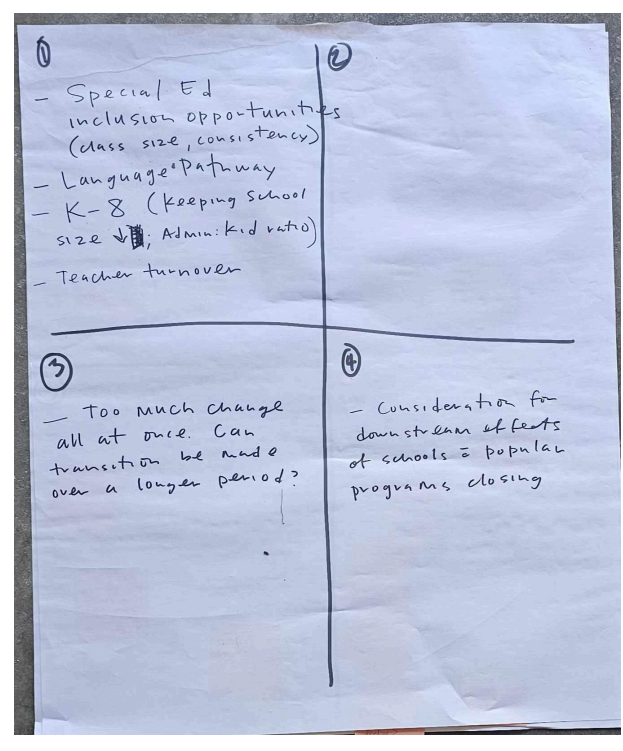 1
- Special Ed
inclusion opportunities
(class size, consistency)
- Language Pathway
- K-8 (Keeping School
size ↓; Admin:Kid ratio)
- Teacher turnover
2
3
- Too much change
all at once. Can
transition be made
over a longer period?
4
- Consideration for
downstream effects
of schools c̄ popular
programs closing